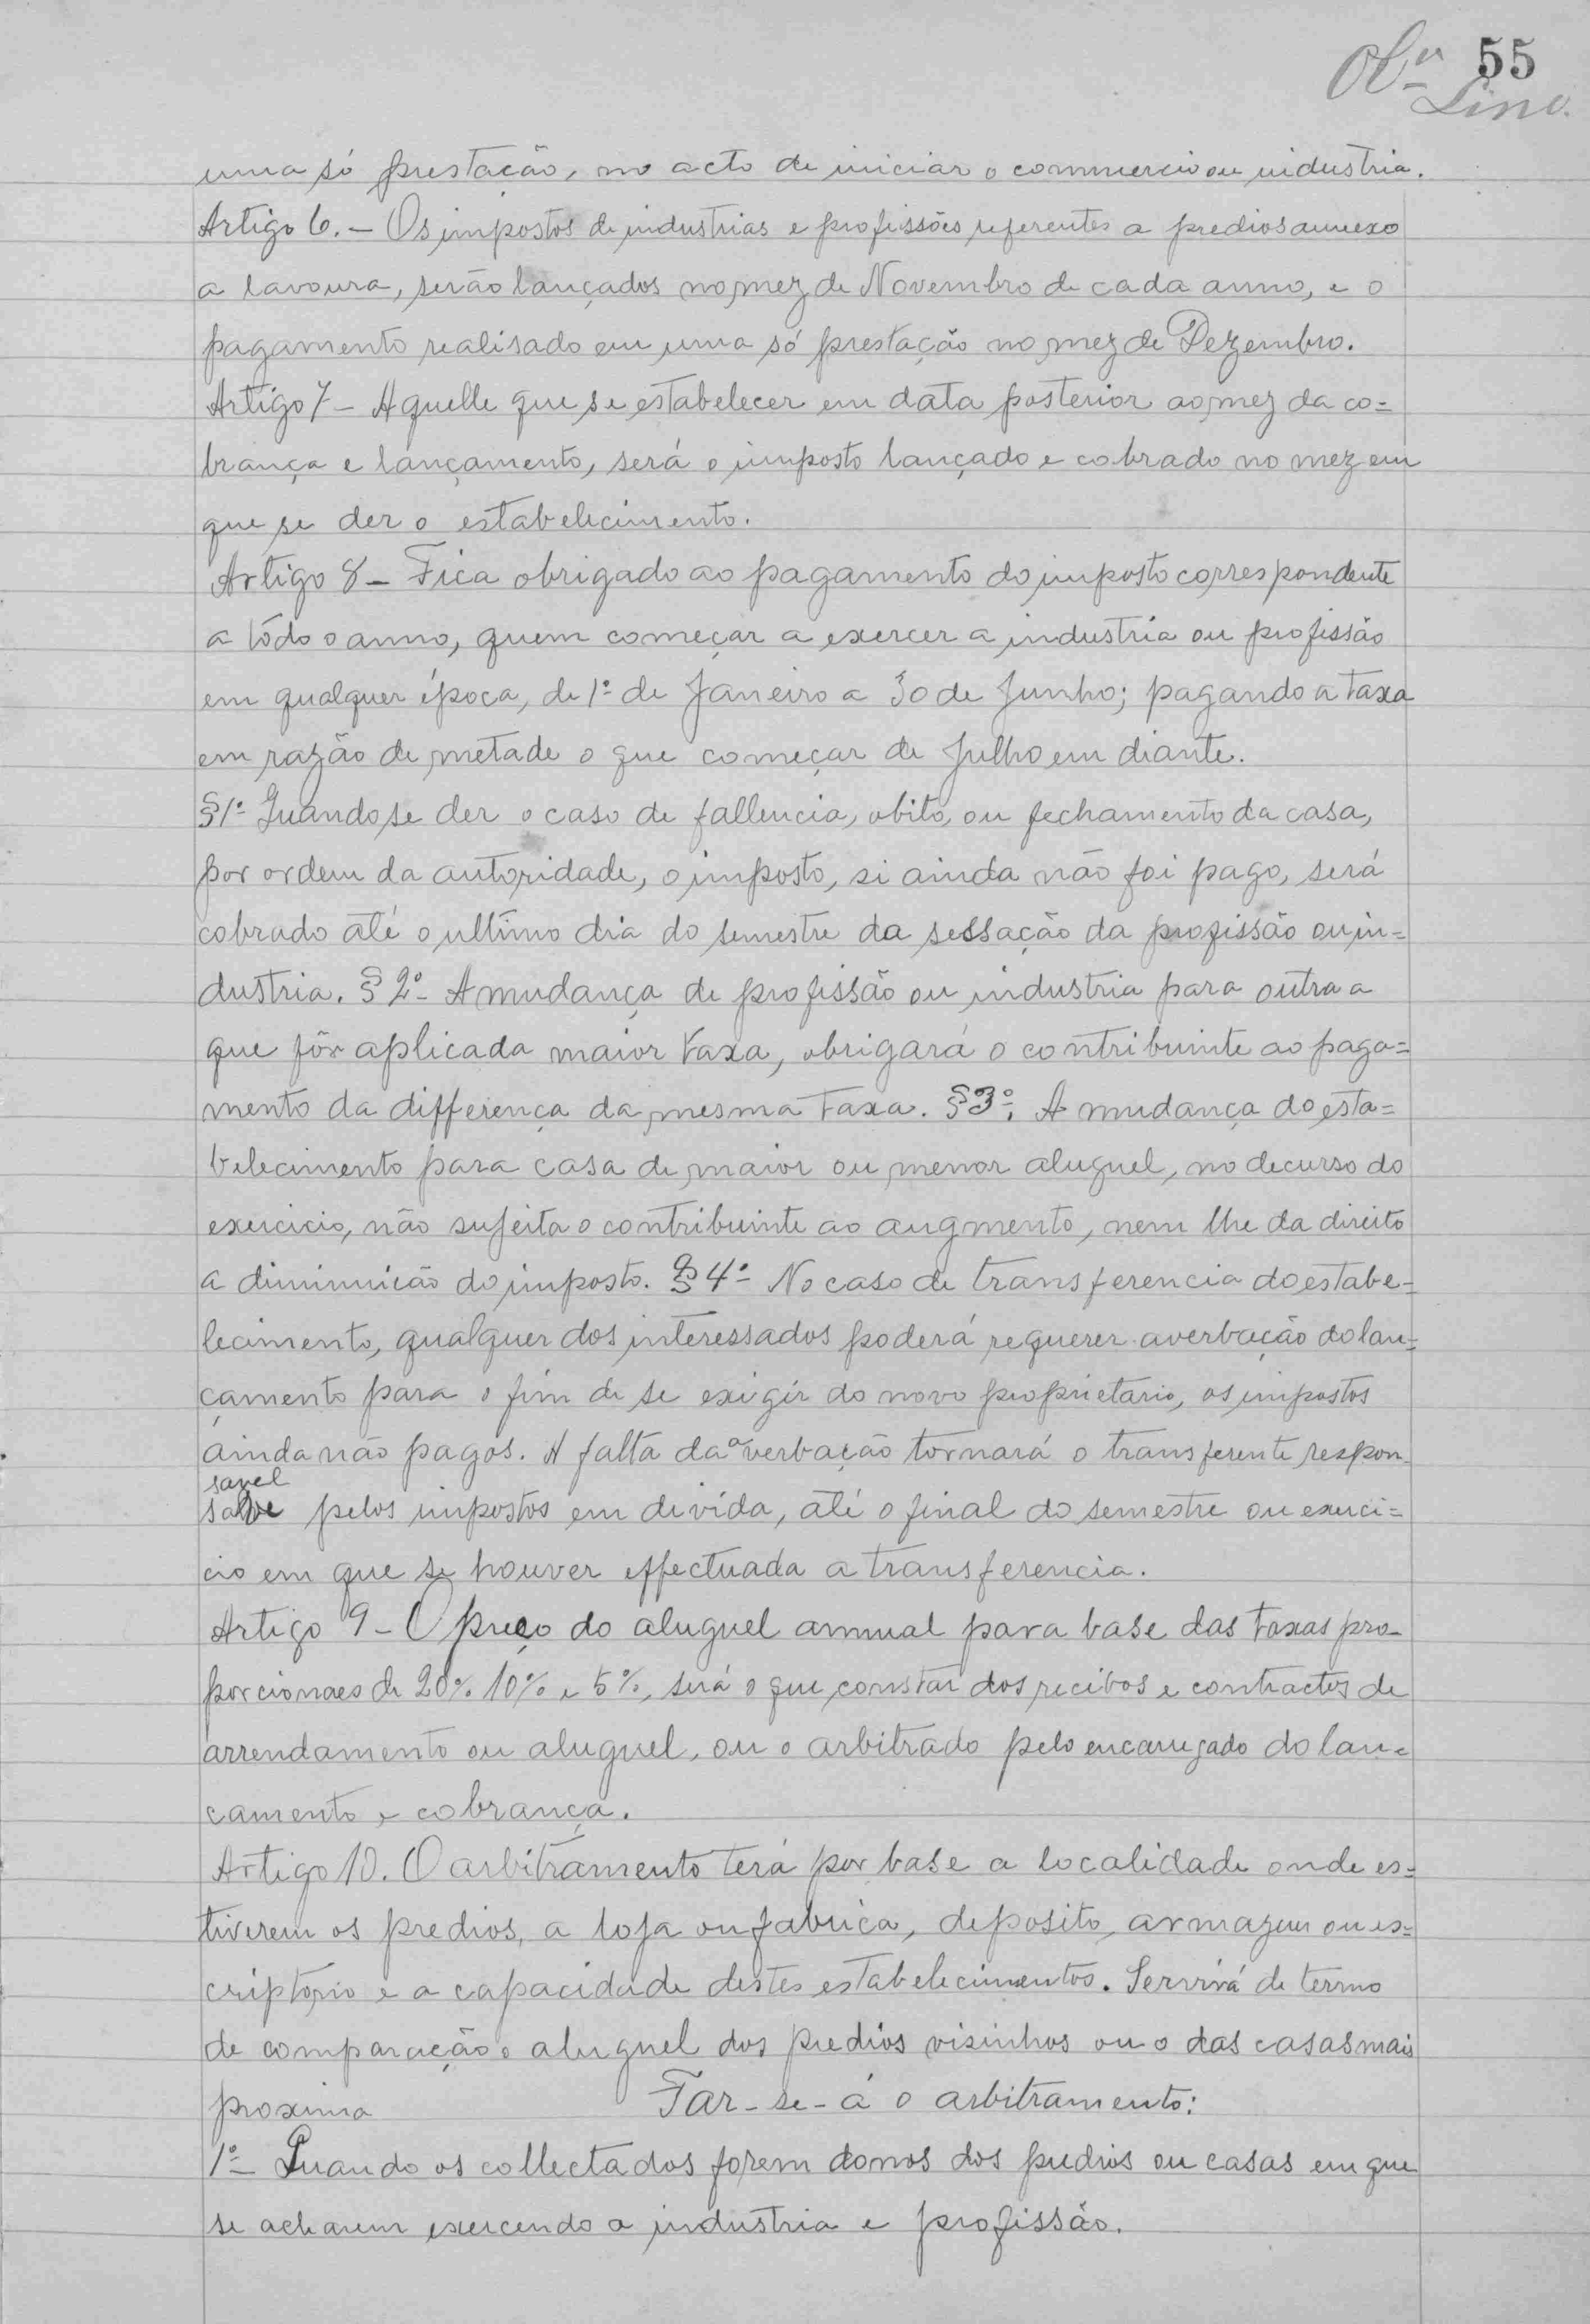 55
Lino.
uma só prestação, no acto de iniciar o commercio ou industria.
Artigo 6. - Os impostos de industrias e profissões referentes a predios annexo
a lavoura, serão lançados no mez de Novembro de cada anno, e o
pagamento realisado em uma só prestação no mez de Dezembro.
Artigo 7 - Aquelle que se estabelecer em data posterior ao mez da co=
brança e lançamento, será o imposto lançado e cobrado no mez em
que se der o estabelecimento.
Artigo 8 - Fica obrigado ao pagamento do imposto correspondente
a tôdo o anno, quem começar a exercer a industria ou profissão
em qualquer época, de 1º de Janeiro a 30 de Junho; pagando a taxa
em razão de metade o que começar de Julho em diante.
§1º Quando se der o caso de fallencia, obito, ou fechamento da casa,
por ordem da autoridade, o imposto, si ainda não foi pago, será
cobrado até o ultimo dia do semestre da sessação da profissão ou in=
dustria. § 2º - A mudança de profissão ou industria para outra a
que fôr aplicada maior taxa, obrigará o contribuinte ao paga=
mento da differença da mesma taxa. §3º. A mudança do esta=
belecimento para casa de maior ou menor aluguel, no decurso do
exercicio, não sujeita o contribuinte ao augmento, nem lhe da direito
a diminuicão do imposto. § 4º No caso de transferencia do estabe-
lecimento, qualquer dos interessados poderá requerer averbação do lan=
çamento para o fim de se exigir do novo proprietario, os impostos
ainda não pagos. A falta da averbação tornará o transferente respon-
savel
salve pelos impostos em divida, até o final do semestre ou exerci=
cio em que se houver effectuada a transferencia.
Artigo 9 - O preço do aluguel annual para base das taxas pro-
porcionaes de 20% 10% e 5%, será o que constar dos recibos e contractos de
arrendamento ou aluguel, ou o arbitrado pelo encarregado do lan=
camento e cobrança.
Artigo 10. O arbitramento terá por base a localidade onde es=
tiverem os predios, a loja ou fabrica, deposito, armazem ou es=
criptorio e a capacidade destes estabelecimentos. Servirá de termo
de comparação o aluguel dos predios visinhos ou o das casas mais
proxima Far-se-á o arbitramento:
1º - Quando os collectados forem donos dos predios ou casas em que
se acharem exercendo a industria e profissão.